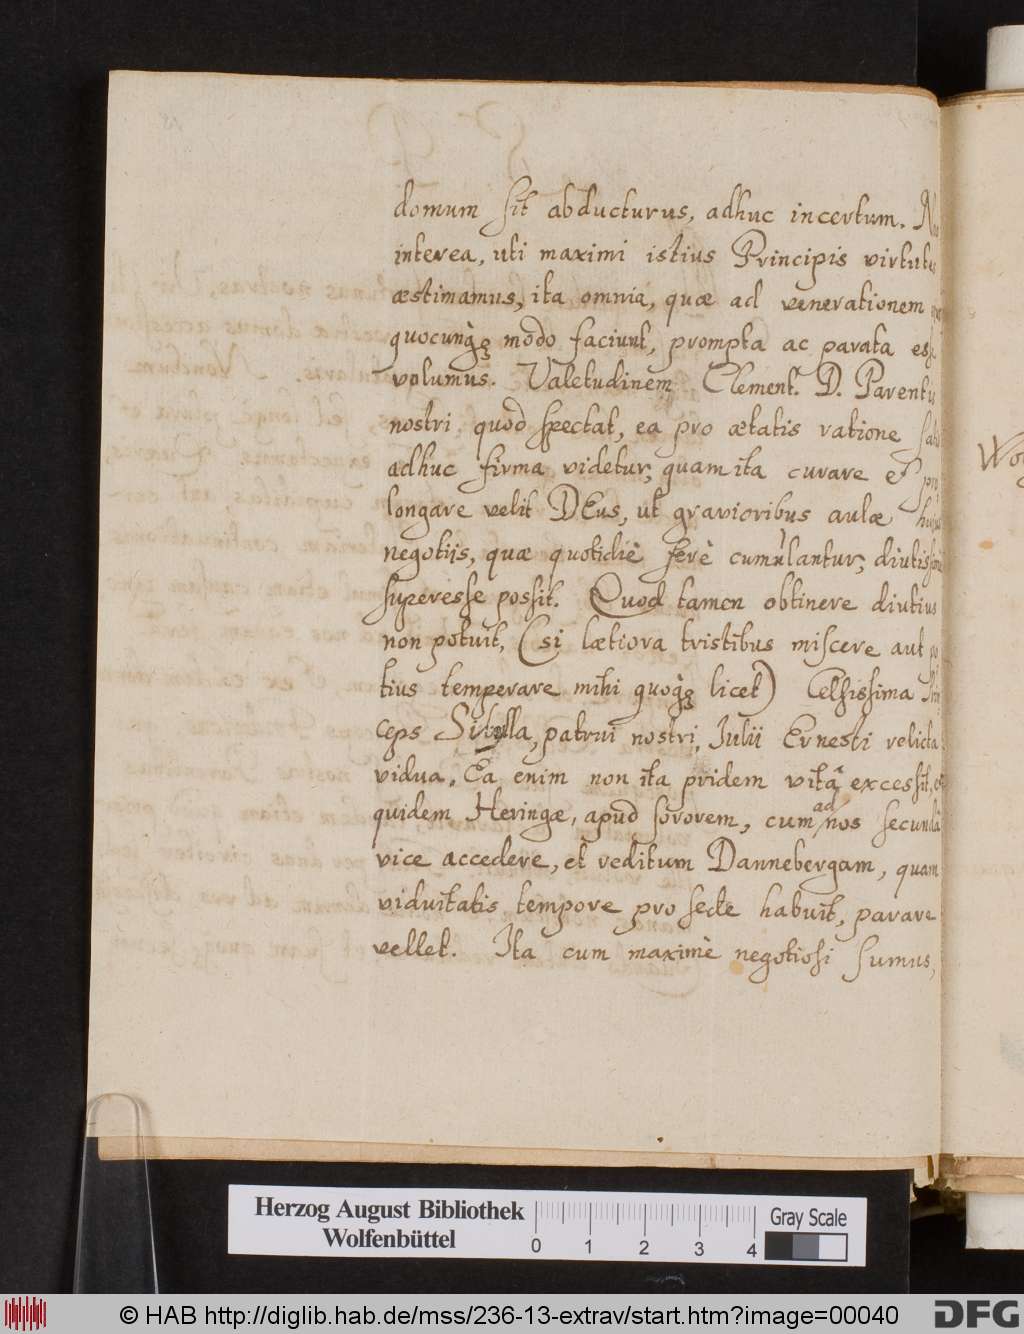 domum sit abducturus, adhuc incertum. Nos
interea, uti maximi istius Principis virtutes
æstimamus, ita omnia, quæ ad venerationem
quocunq̀ꝫ modo faciunt, prompta ac parata esse
volumus. Valetudinem Clement. D. Parentis
nostri quod spectat, ea pro ætatis ratione satis
adhuc firma videtur, quam ita curare et pro
longare velit DEus, ut gravioribus aulæ hujus
negotiis, quæ quotidiè ferè cumulantur, diutissimè
superesse possit. Quod tamen obtinere diutius
non potuit, (si lætiora tristibus miscere aut po
tius temperare mihi quoq̀ꝫ licet) Celsissima Prin
ceps Sibylla, patrui nostri, Julii Ernesti relicta
vidua. Ea enim non ita pridem vitâ excessit, et
quidem Heringæ, apud sororem, cum ad nos secundâ
vice accedere, et reditum Dannebergam, quam
viduitatis tempore pro sede habuit, parare
vellet. Ita cum maximè negotiosi sumus,
Herzog August Bibliothek
Wolfenbüttel
0 1 2 3 4
Gray Scale
© HAB http://diglib.hab.de/mss/236-13-extrav/start.htm?image=00040
DFG